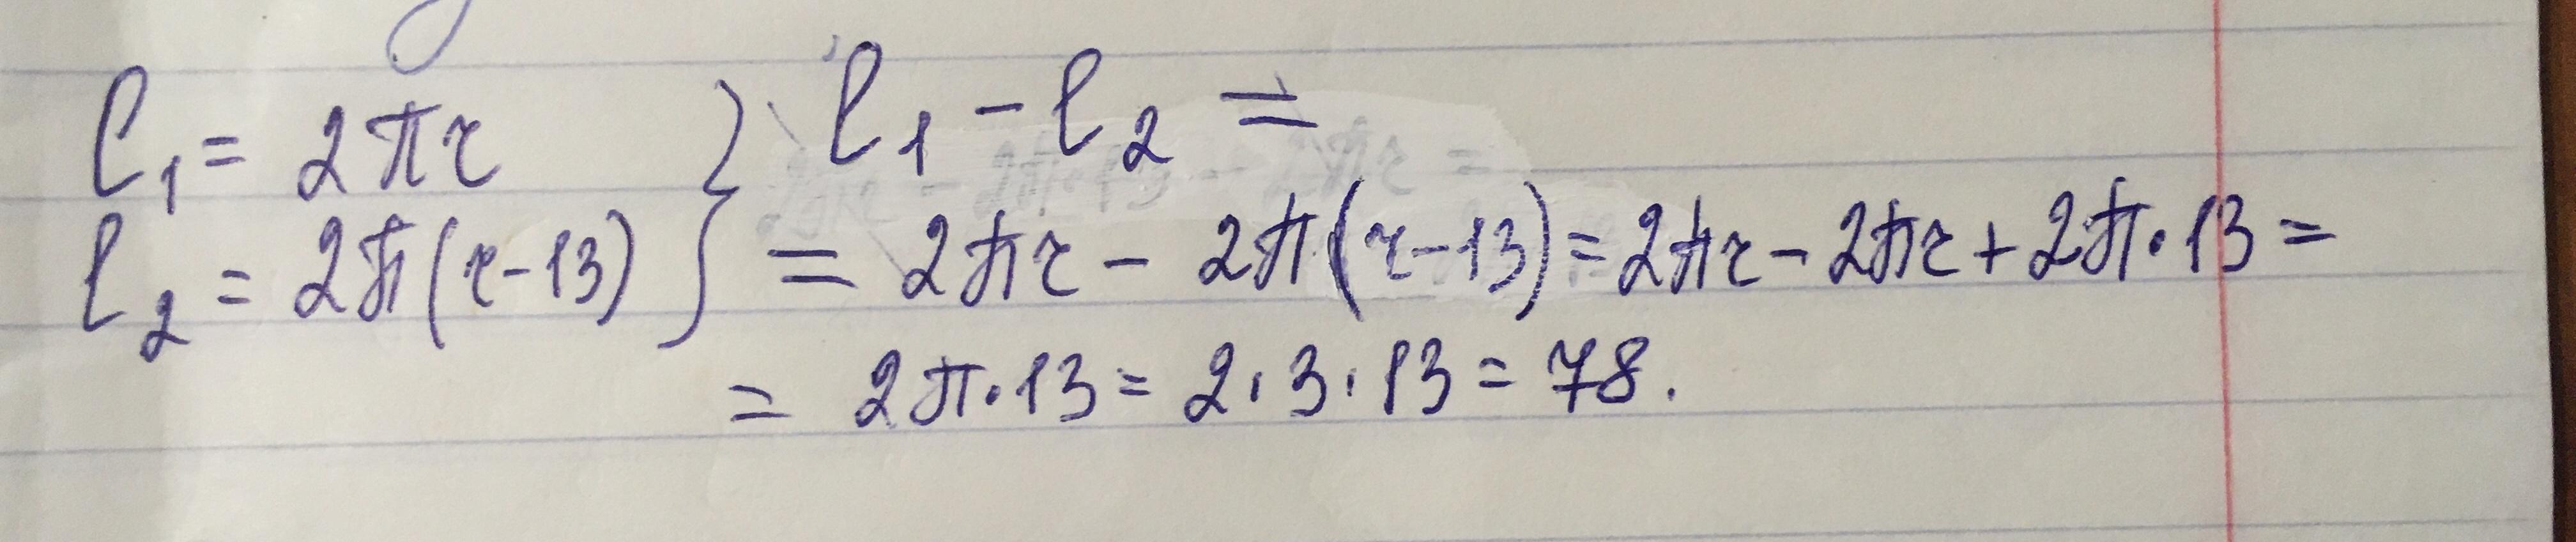 l₁ = 2πr } l₁ - l₂ =
l₂ = 2π(r-13) } = 2πr - 2π(r-13) = 2πr - 2πr + 2π·13 =
= 2π·13 = 2·3·13 = 78.